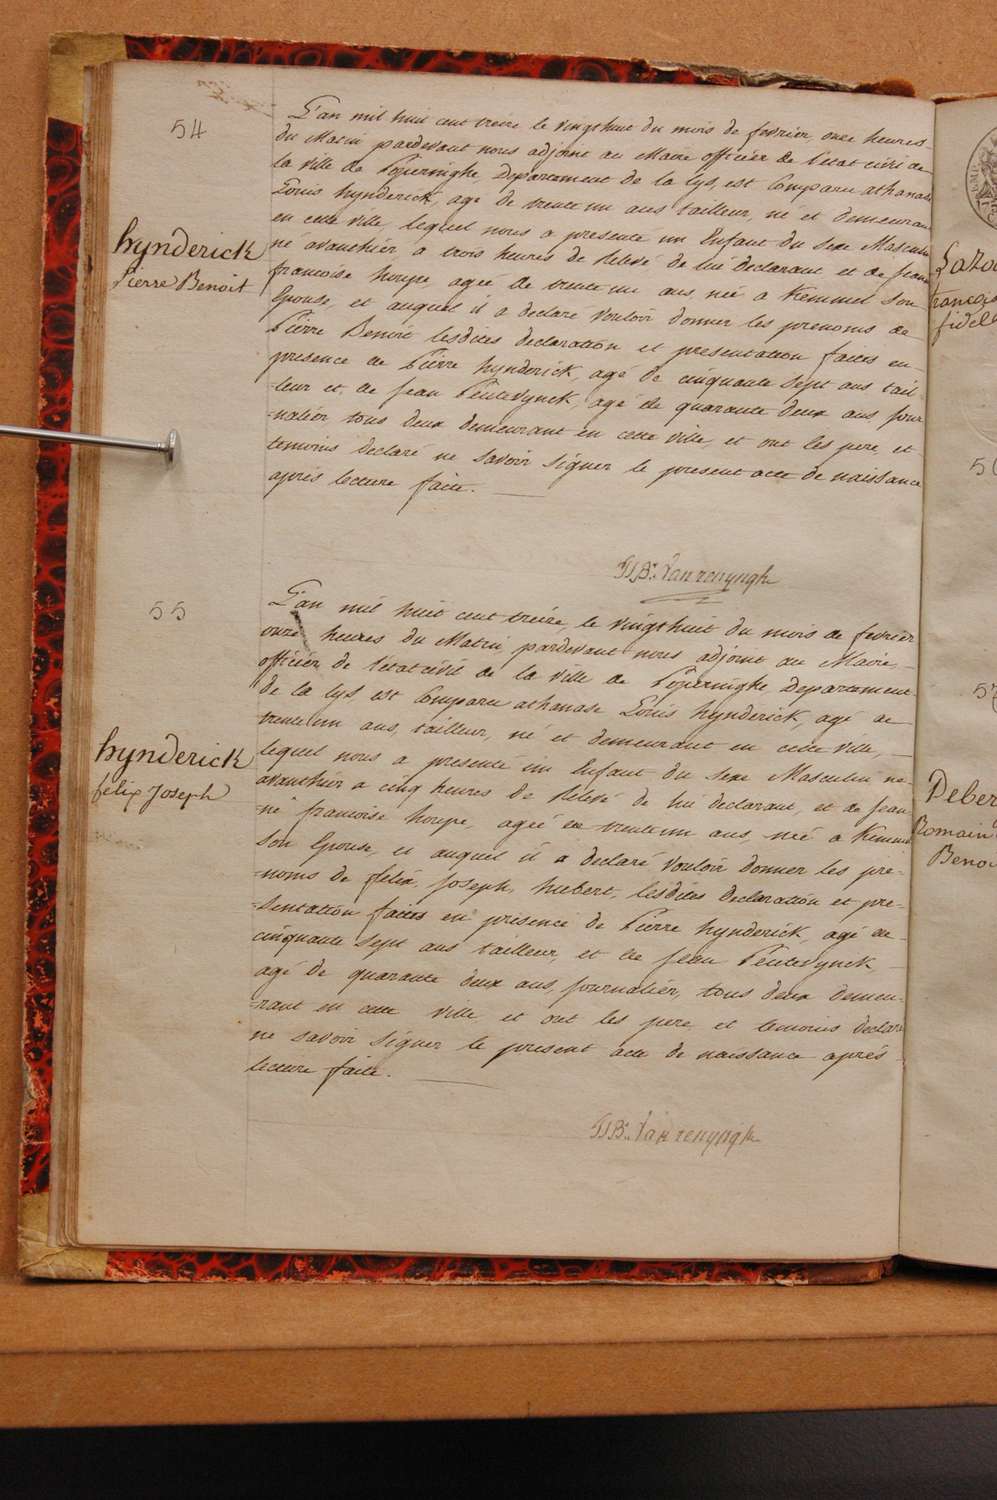 54
hynderick
Pierre Benoit
L'an mil huit cent treize le vingthuit du mois de fevrier onze heures
du Matin pardevant nous adjoint au Maire officier de l'etat civil de
la ville de Poperinghe, Departement de la Lys, est Comparu athanase
Louis hynderick, agé de trente un ans tailleur, né et demeurant
en cette ville, lequel nous a presenté un Enfant du sexe Masculin
né avanthier, a trois heures de Relevé de lui declarant et de Jeanne
francoise houpe, agée de trente un ans, née a Kemmel Son
Epouse, et auquel il a declaré vouloir donner les prenoms de
Pierre Benoit lesdites declaration et presentation faites en
presence de Pierre hynderick, agé de cinquante sept ans tail
=leur et, de Jean Peutevynck, agé de quarante deux ans, jour
=nalier, tous deux demeurant en cette ville, et ont les pere, et
temoins declaré ne savoir signer le present acte de naissance
après lecture faite.
Vanrenyngh
55
hynderick
felix Joseph
L'an mil huit cent treize, le vingthuit du mois de fevrier
onze heures du Matin, pardevant nous adjoint au Maire,
officier de l'etat civil de la ville de Poperinghe, Departement
de la Lys, est Comparu athanase Louis hynderick, agé de
trente un ans, tailleur, né et demeurant en cette ville,
lequel nous a presenté un Enfant du sexe Masculin né
avanthier a cinq heures de Relevé de lui declarant, et de Jean
=ne francoise houpe, agée de trente un ans, née a Kemmel
Son Epouse, et auquel il a declaré vouloir donner les pre=
=noms de felix, Joseph, hubert, lesdites declaration et pre=
=sentation faites en presence de Pierre hynderick, agé de
cinquante sept ans tailleur, et de Jean Peutevynck
agé de quarante deux ans, journalier, tous deux demeu=
=rant en cette ville et ont les pere, et temoins declaré
ne savoir signer le present acte de naissance après
lecture faite.
Vanrenyngh
fidel
Deber
Romain
Beno